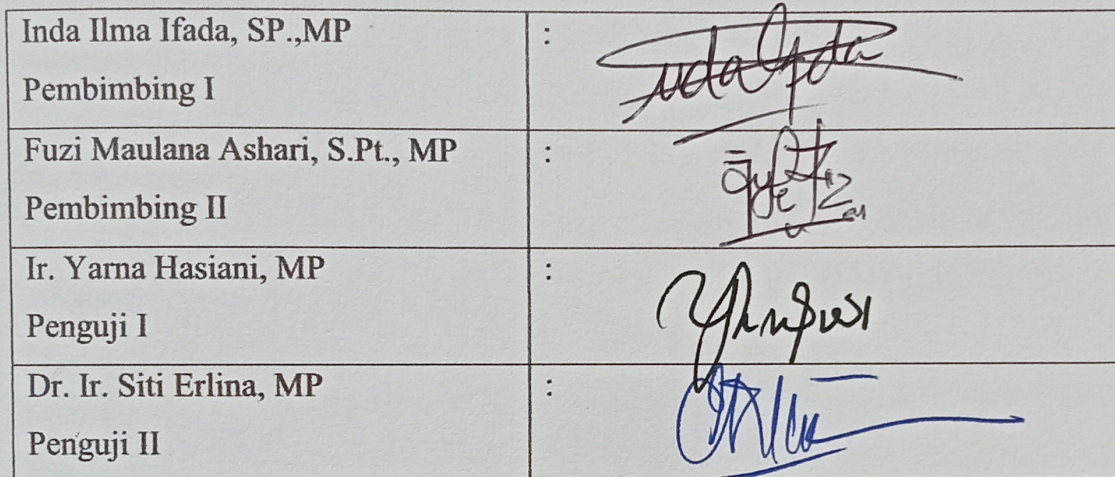 Inda Ilma Ifada, SP.,MP :
Pembimbing I
Fuzi Maulana Ashari, S.Pt., MP :
Pembimbing II
Ir. Yarna Hasiani, MP :
Penguji I
Dr. Ir. Siti Erlina, MP :
Penguji II